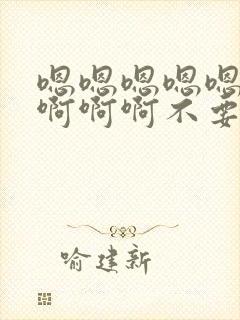 嗯嗯嗯嗯嗯
啊啊啊不要
喻建新